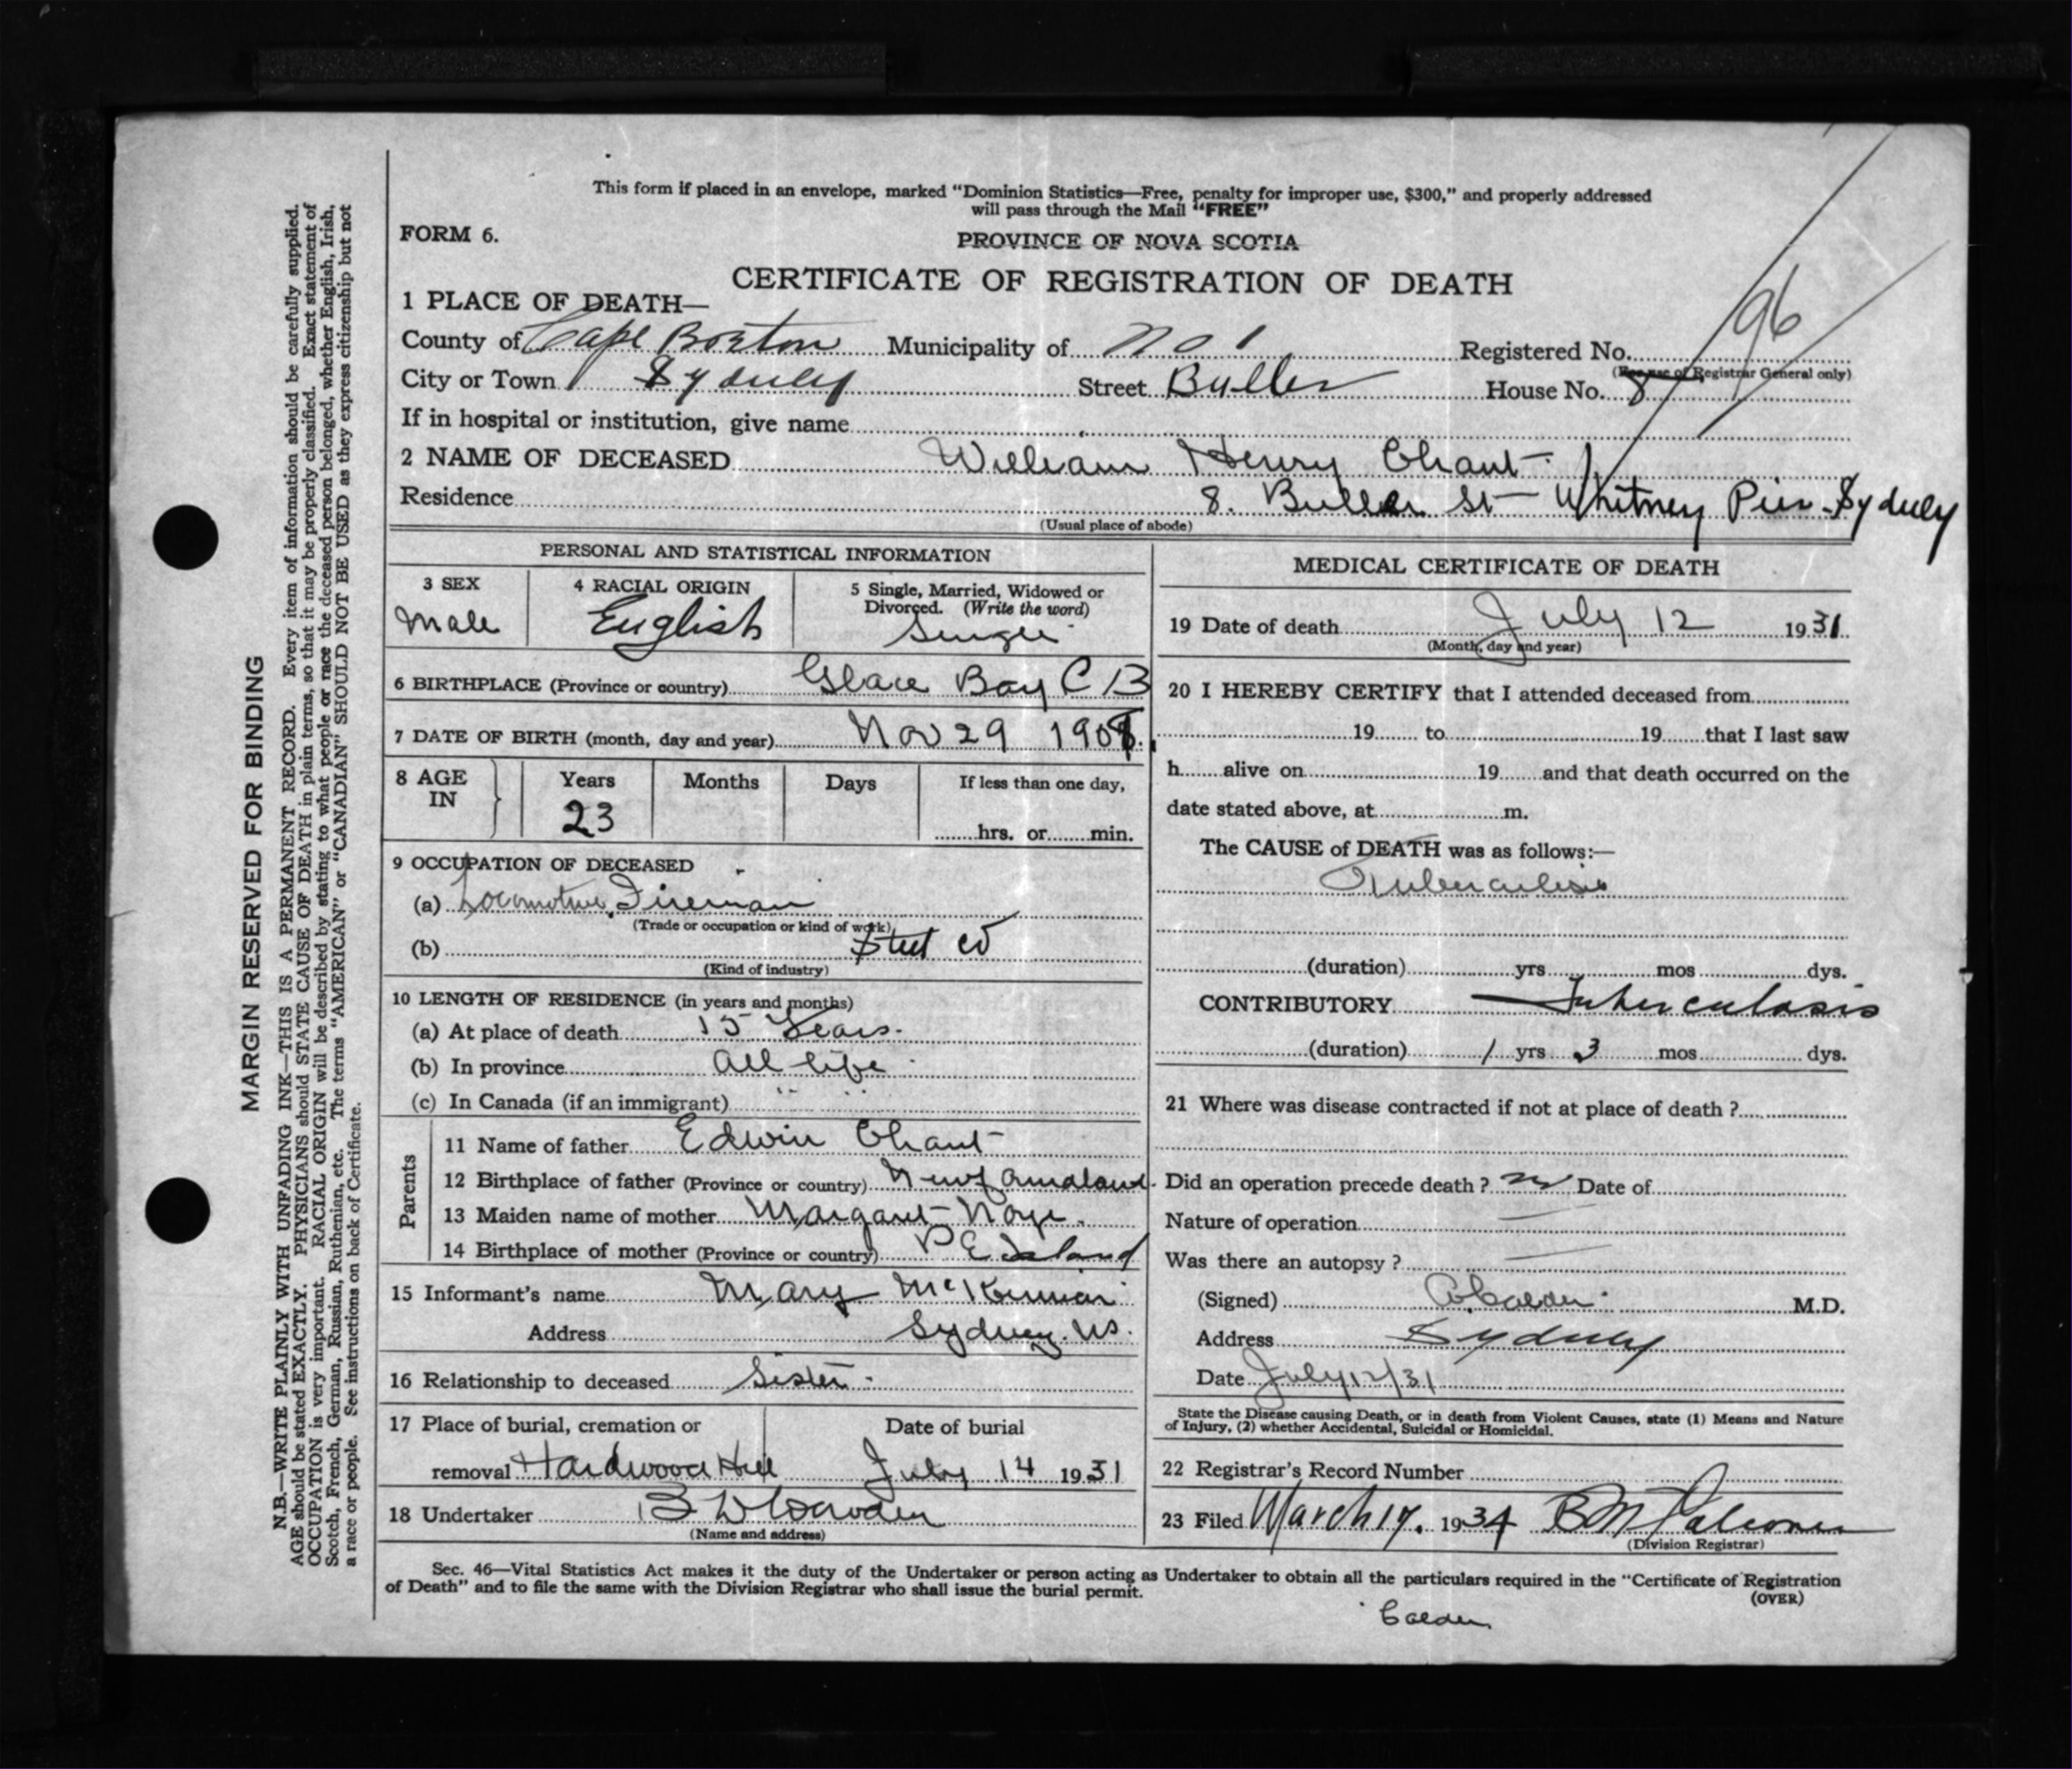 This form if placed in an envelope, marked “Dominion Statistics—Free, penalty for improper use, $300,” and properly addressed
will pass through the Mail “FREE”
FORM 6.
PROVINCE OF NOVA SCOTIA
CERTIFICATE OF REGISTRATION OF DEATH
1 PLACE OF DEATH—
County of Cape Breton Municipality of No 1 Registered No. 96
(For use of Registrar General only)
City or Town Sydney Street Buller House No. 8
If in hospital or institution, give name
2 NAME OF DECEASED William Henry Chant
Residence 8. Buller St — Whitney Pier - Sydney
(Usual place of abode)
PERSONAL AND STATISTICAL INFORMATION
3 SEX
Male
4 RACIAL ORIGIN
English
5 Single, Married, Widowed or
Divorced. (Write the word)
Single
6 BIRTHPLACE (Province or country) Glace Bay C B
7 DATE OF BIRTH (month, day and year) Nov 29 1908.
8 AGE
IN
Years
23
Months
Days
If less than one day,
hrs. or min.
9 OCCUPATION OF DECEASED
(a) Locomotive Fireman
(Trade or occupation or kind of work)
(b) Steel Co
(Kind of industry)
10 LENGTH OF RESIDENCE (in years and months)
(a) At place of death 15 Years.
(b) In province all life
(c) In Canada (if an immigrant) " "
Parents
11 Name of father Edwin Chant
12 Birthplace of father (Province or country) Newfoundland.
13 Maiden name of mother Margaret
14 Birthplace of mother (Province or country) P E Island
15 Informant's name Mary McKinnon
Address Sydney. NS.
16 Relationship to deceased Sister.
17 Place of burial, cremation or
removal Hardwood Hill
Date of burial
July 14 1931
18 Undertaker B W
(Name and address)
MEDICAL CERTIFICATE OF DEATH
19 Date of death July 12 1931.
(Month, day and year)
20 I HEREBY CERTIFY that I attended deceased from
19 to 19 that I last saw
h alive on 19 and that death occurred on the
date stated above, at m.
The CAUSE of DEATH was as follows:—
Tuberculosis
(duration) yrs mos dys.
CONTRIBUTORY Tuberculosis
(duration) 1 yrs 3 mos dys.
21 Where was disease contracted if not at place of death ?
Did an operation precede death ? no Date of
Nature of operation —
Was there an autopsy ? —
(Signed) Calder M.D.
Address Sydney
Date July 12/31
State the Disease causing Death, or in death from Violent Causes, state (1) Means and Nature
of Injury, (2) whether Accidental, Suicidal or Homicidal.
22 Registrar's Record Number
23 Filed March 17. 1934 B M Falconer
(Division Registrar)
Sec. 46—Vital Statistics Act makes it the duty of the Undertaker or person acting as Undertaker to obtain all the particulars required in the “Certificate of Registration
of Death” and to file the same with the Division Registrar who shall issue the burial permit.
(OVER)
Calder
MARGIN RESERVED FOR BINDING
N.B.—WRITE PLAINLY WITH UNFADING INK—THIS IS A PERMANENT RECORD. Every item of information should be carefully supplied.
AGE should be stated EXACTLY. PHYSICIANS should STATE CAUSE OF DEATH in plain terms, so that it may be properly classified. Exact statement of
OCCUPATION is very important. RACIAL ORIGIN will be described by stating to what people or race the deceased person belonged, whether English, Irish,
Scotch, French, German, Russian, Ruthenian, etc. The terms “AMERICAN” or “CANADIAN” SHOULD NOT BE USED as they express citizenship but not
a race or people. See instructions on back of Certificate.